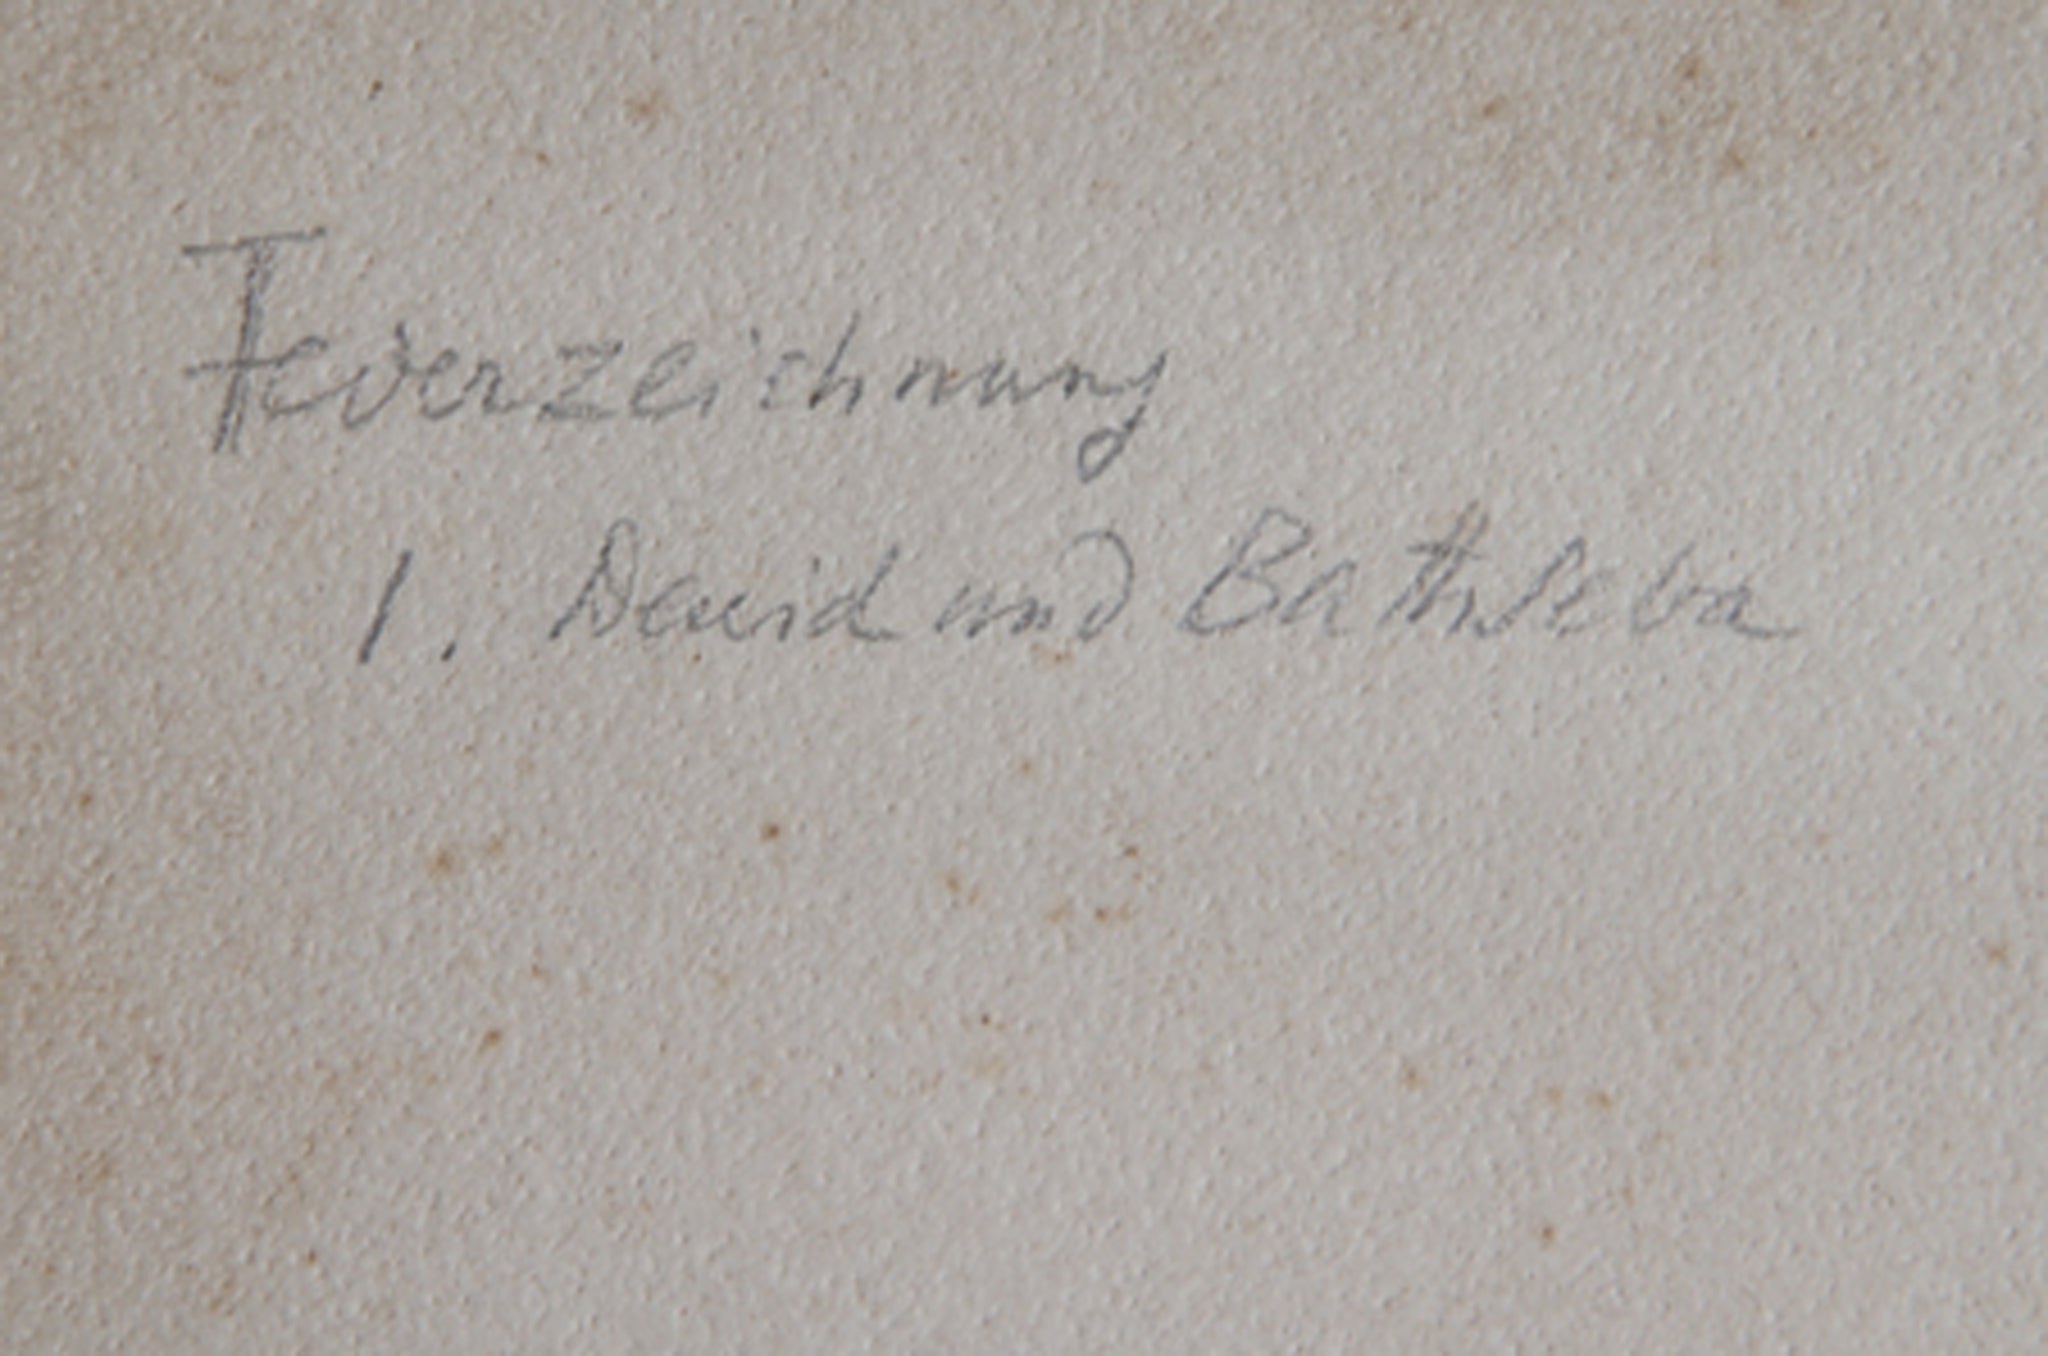 Federzeichnung
1. David und Bathseba